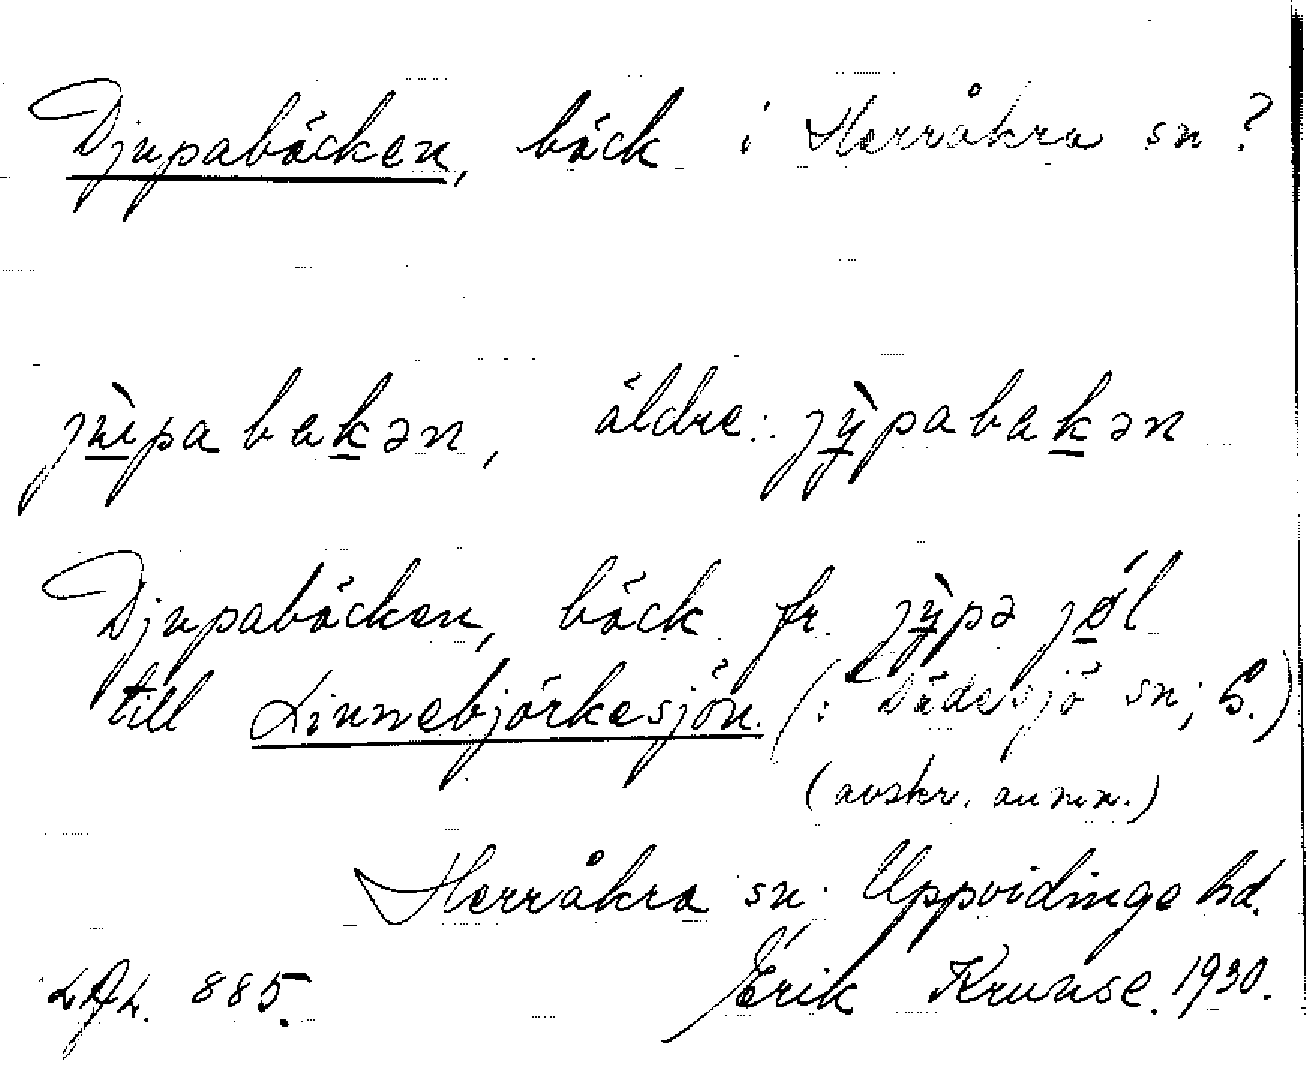 Djupabäcken, bäck i Herråkra sn?
jùpabakən, äldre: jỳpabakən
Djupabäcken, bäck fr. jỳpə jǿl
till Linnebjörkesjön. (: Dädesjö sn; S.)
(avskr. anm.)
Herråkra sn. Uppvidinge hd.
885. Erik Kruuse. 1930.